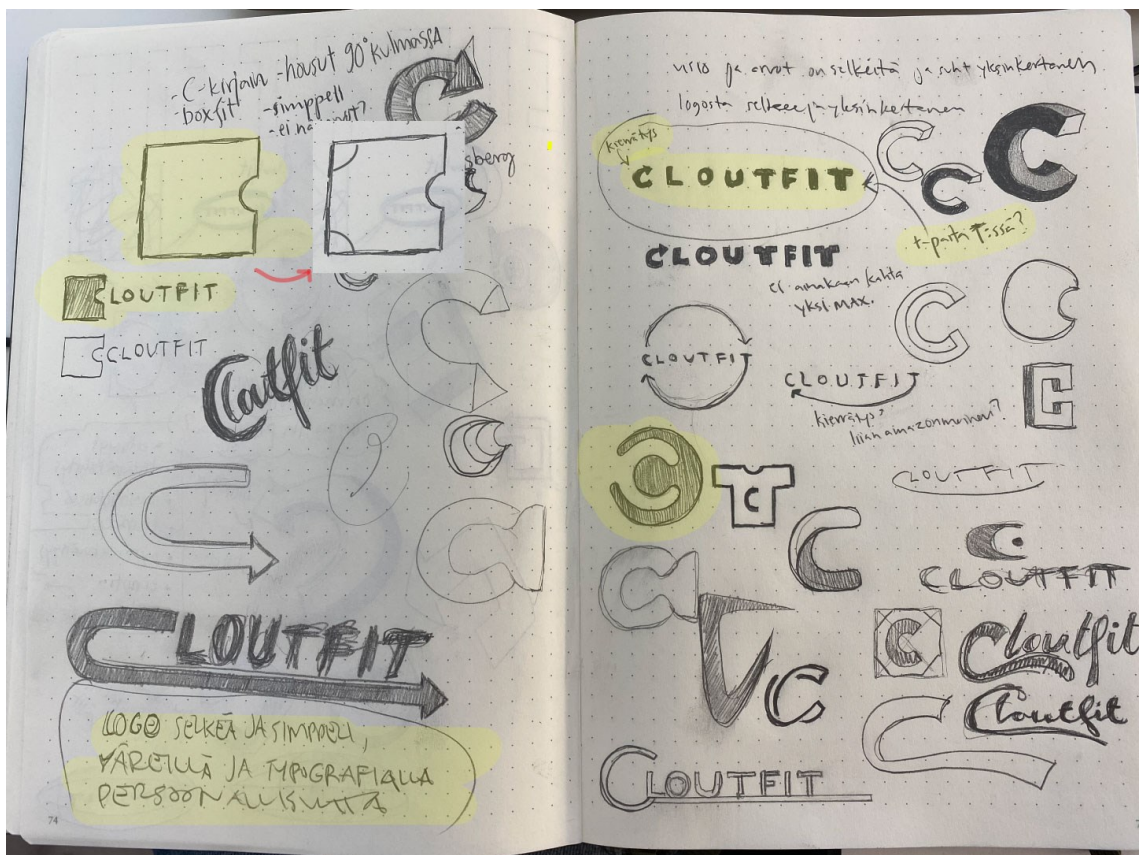 -C-kirjain -housut 90° kulmassa
-boxfit -simppeli
-ei na
sberg
LOUTFIT
CLOUTFIT
Cloutfit
CLOUTFIT
LOGO SELKEÄ JA SIMPPELI,
VÄREILLÄ JA TYPOGRAFIALLA
PERSOONALLISUUTTA
74
visio ja arvot on selkeitä ja suht yksinkertanen
logosta selkee ja yksinkertanen
kierrätys
CLOUTFIT
C
C
C
t-paita T:ssä?
CLOUTFIT
ei ainakaan kahta
yksi MAX.
C
CLOUTFIT
CLOUTFIT
kierrätys?
liian amazonmainen?
C
CLOUTFIT
C
C
CLOUTFIT
C
Cloutfit
C
Cloutfit
CLOUTFIT